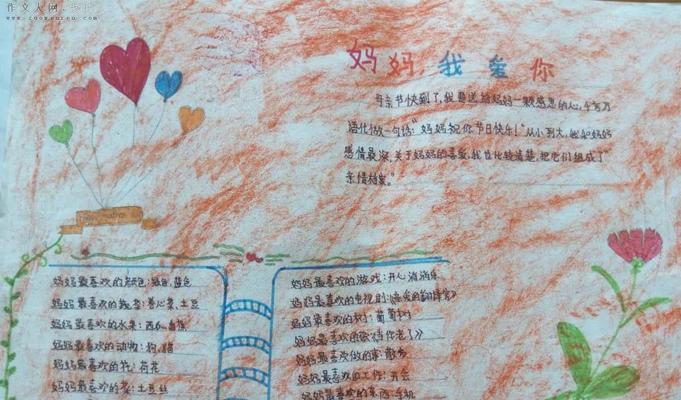 作文人网
www.zuowenren.com
妈妈,我爱你
母亲节快到了,我要送给妈妈一颗感恩的心,千言万
语化做一句话:“妈妈祝你节日快乐!”从小到大,我和妈妈
感情最深,关于妈妈的喜爱,我也比较清楚,把它们组成了“
亲情档案。”
妈妈最喜欢的颜色:绿色,蓝色
妈妈最喜欢的蔬菜:卷心菜,土豆
妈妈最喜欢的水果:西瓜,香蕉
妈妈最喜欢的动物:狗,猫
妈妈最喜欢的花:荷花
妈妈最喜欢的菜:土豆丝
妈妈最喜欢的游戏:开心消消乐
妈妈最喜欢的电视剧:
妈妈最喜欢的树:葡萄树
妈妈最喜欢的歌《你老了》
妈妈最喜欢做的事:散步
妈妈最喜欢的工作:开会
妈妈最喜欢的东西:手机